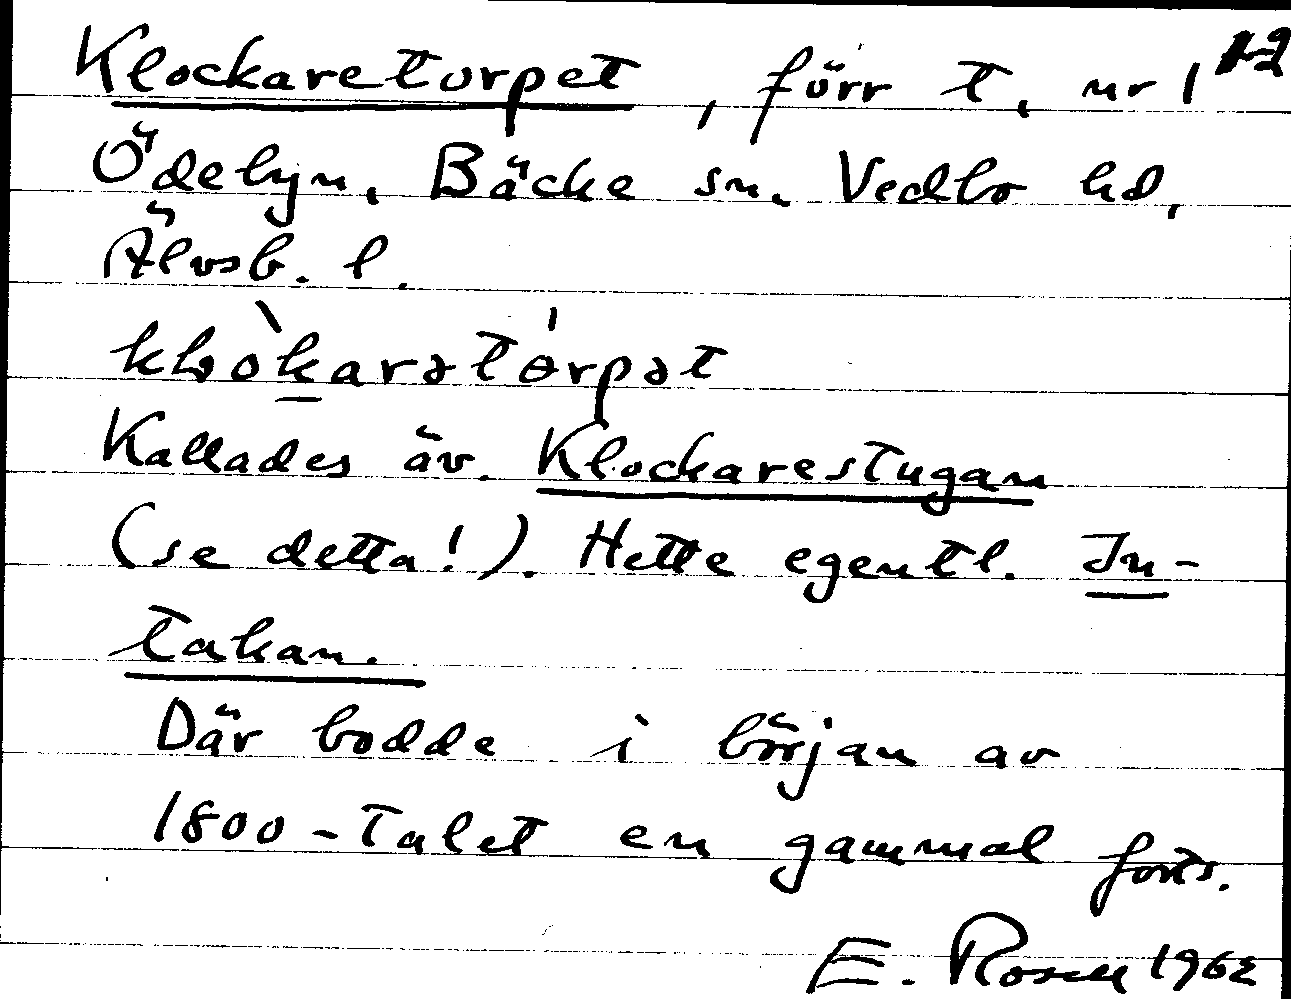 Klockaretorpet, förr t. nr 1 1-2
Ödebyn, Bäcke sn. Vedbo hd,
Älvsb. l.
klɔ̀karətórpət
Kallades äv. Klockarestugan
(se detta!). Hette egentl. In-
takan.
Där bodde i början av
1800-talet en gammal forts.
E. Rosell 1962